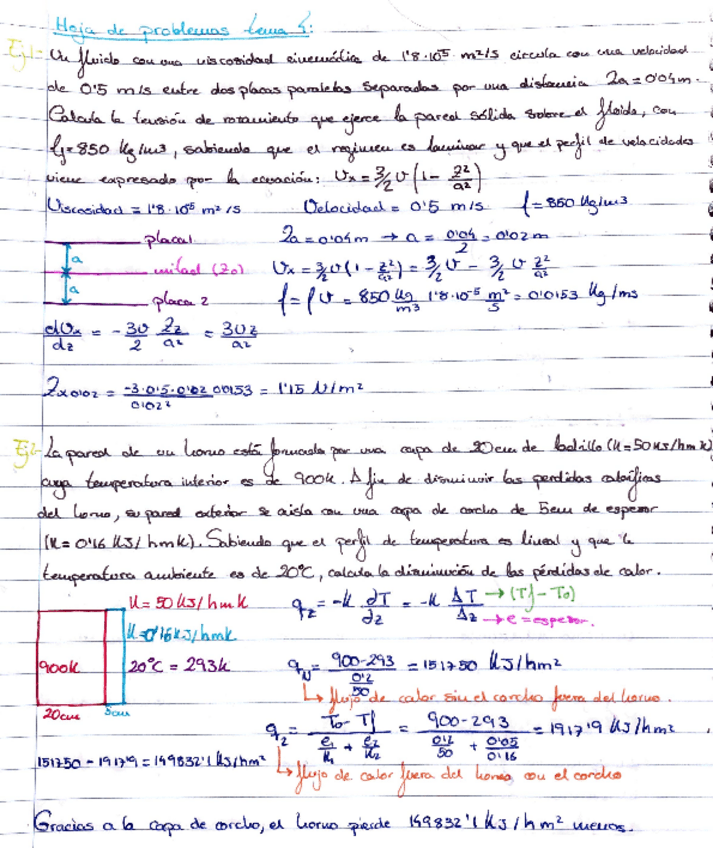 Hoja de problemas tema 5:
Ej1- Un fluido con una viscosidad cinemática de 1'8·10⁵ m²/s circula con una velocidad
de 0'5 m/s entre dos placas paralelas separadas por una distancia 2a = 0'04m.
Calcula la tensión de rozamiento que ejerce la pared sólida sobre el fluido, con
ρ = 850 Kg/m3, sabiendo que el regimen es laminar y que el perfil de velocidades
viene expresado por la ecuación: Ux = 3/2 U (1 - z²/a²)
Viscosidad = 1'8·10⁵ m²/s Velocidad = 0'5 m/s ρ = 850 Kg/m3
placa1 2a = 0'04m → a = 0'04/2 = 0'02m
a
mitad (Z0) Ux = 3/2 U (1 - z²/a²) = 3/2 U - 3/2 U z²/a²
a
placa 2 = ρ U = 850 Kg/m3 1'8·10⁻⁵ m²/s = 0'0153 Kg/ms
dUx/dz = -3U/2 2z/a² = 3Uz/a²
Zx0'02 = -3·0'5·0'02/0'02² 0'0153 = 1'15 N/m²
Ej2- La pared de un horno está formada por una capa de 20cm de ladrillo (K=50KJ/hmK)
cuya temperatura interior es de 900K. A fin de disminuir las perdidas caloríficas
del horno, su pared exterior se aisla con una capa de corcho de 5cm de espesor
(K = 0'16 KJ/hmk). Sabiendo que el perfil de temperatura es lineal y que la
temperatura ambiente es de 20°C, calcula la disminución de las pérdidas de calor.
K = 50 KJ/hmk qz = -K ∂T/∂z = -K ΔT/Δz → (Tf - To)
→ e = espesor.
K=0'16KJ/hmk
900K 20°C = 293k q = 900-293 / 0'2/50 = 151750 KJ/hm²
↳ flujo de calor sin el corcho fuera del horno.
20cm 5cm
qz = To - Tf / e1/K1 + e2/K2 = 900-293 / 0'2/50 + 0'05/0'16 = 1917'9 KJ/hm²
151750 - 1917'9 = 149832'1 KJ/hm² ↳ flujo de calor fuera del horno con el corcho
Gracias a la capa de corcho, el horno pierde 149832'1 KJ/hm² menos.